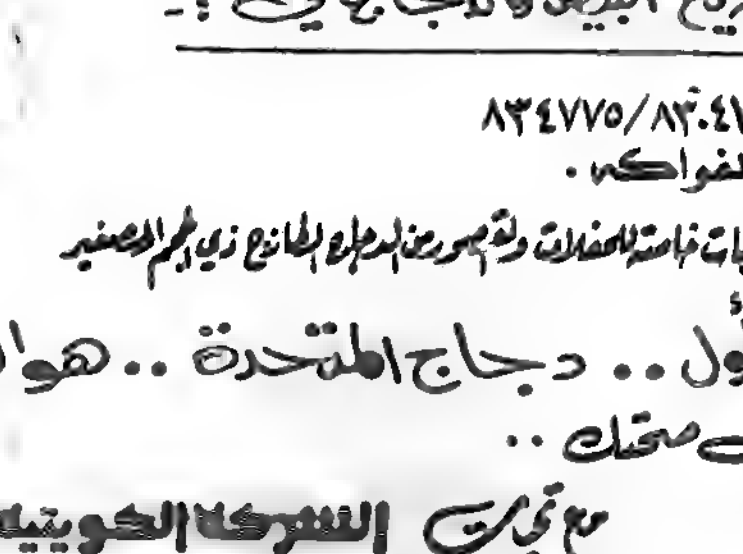 البيض والدجاج في :-
٨٣٤٧٧٥/٨٣٠٤١
لفواكه .
خاصة للحفلات ولقصور من الدجاج الطازج ذي الحجم الصغير
ول .. دجاج المتحدة .. هوا
صحتك ..
مع تحيات الشركة الكويتية